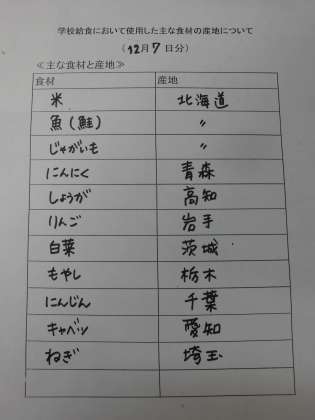 学校給食において使用した主な食材の産地について
(12月7日分)
≪主な食材と産地≫
食材 産地
米 北海道
魚(鮭) 〃
じゃがいも 〃
にんにく 青森
しょうが 高知
りんご 岩手
白菜 茨城
もやし 栃木
にんじん 千葉
キャベツ 愛知
ねぎ 埼玉